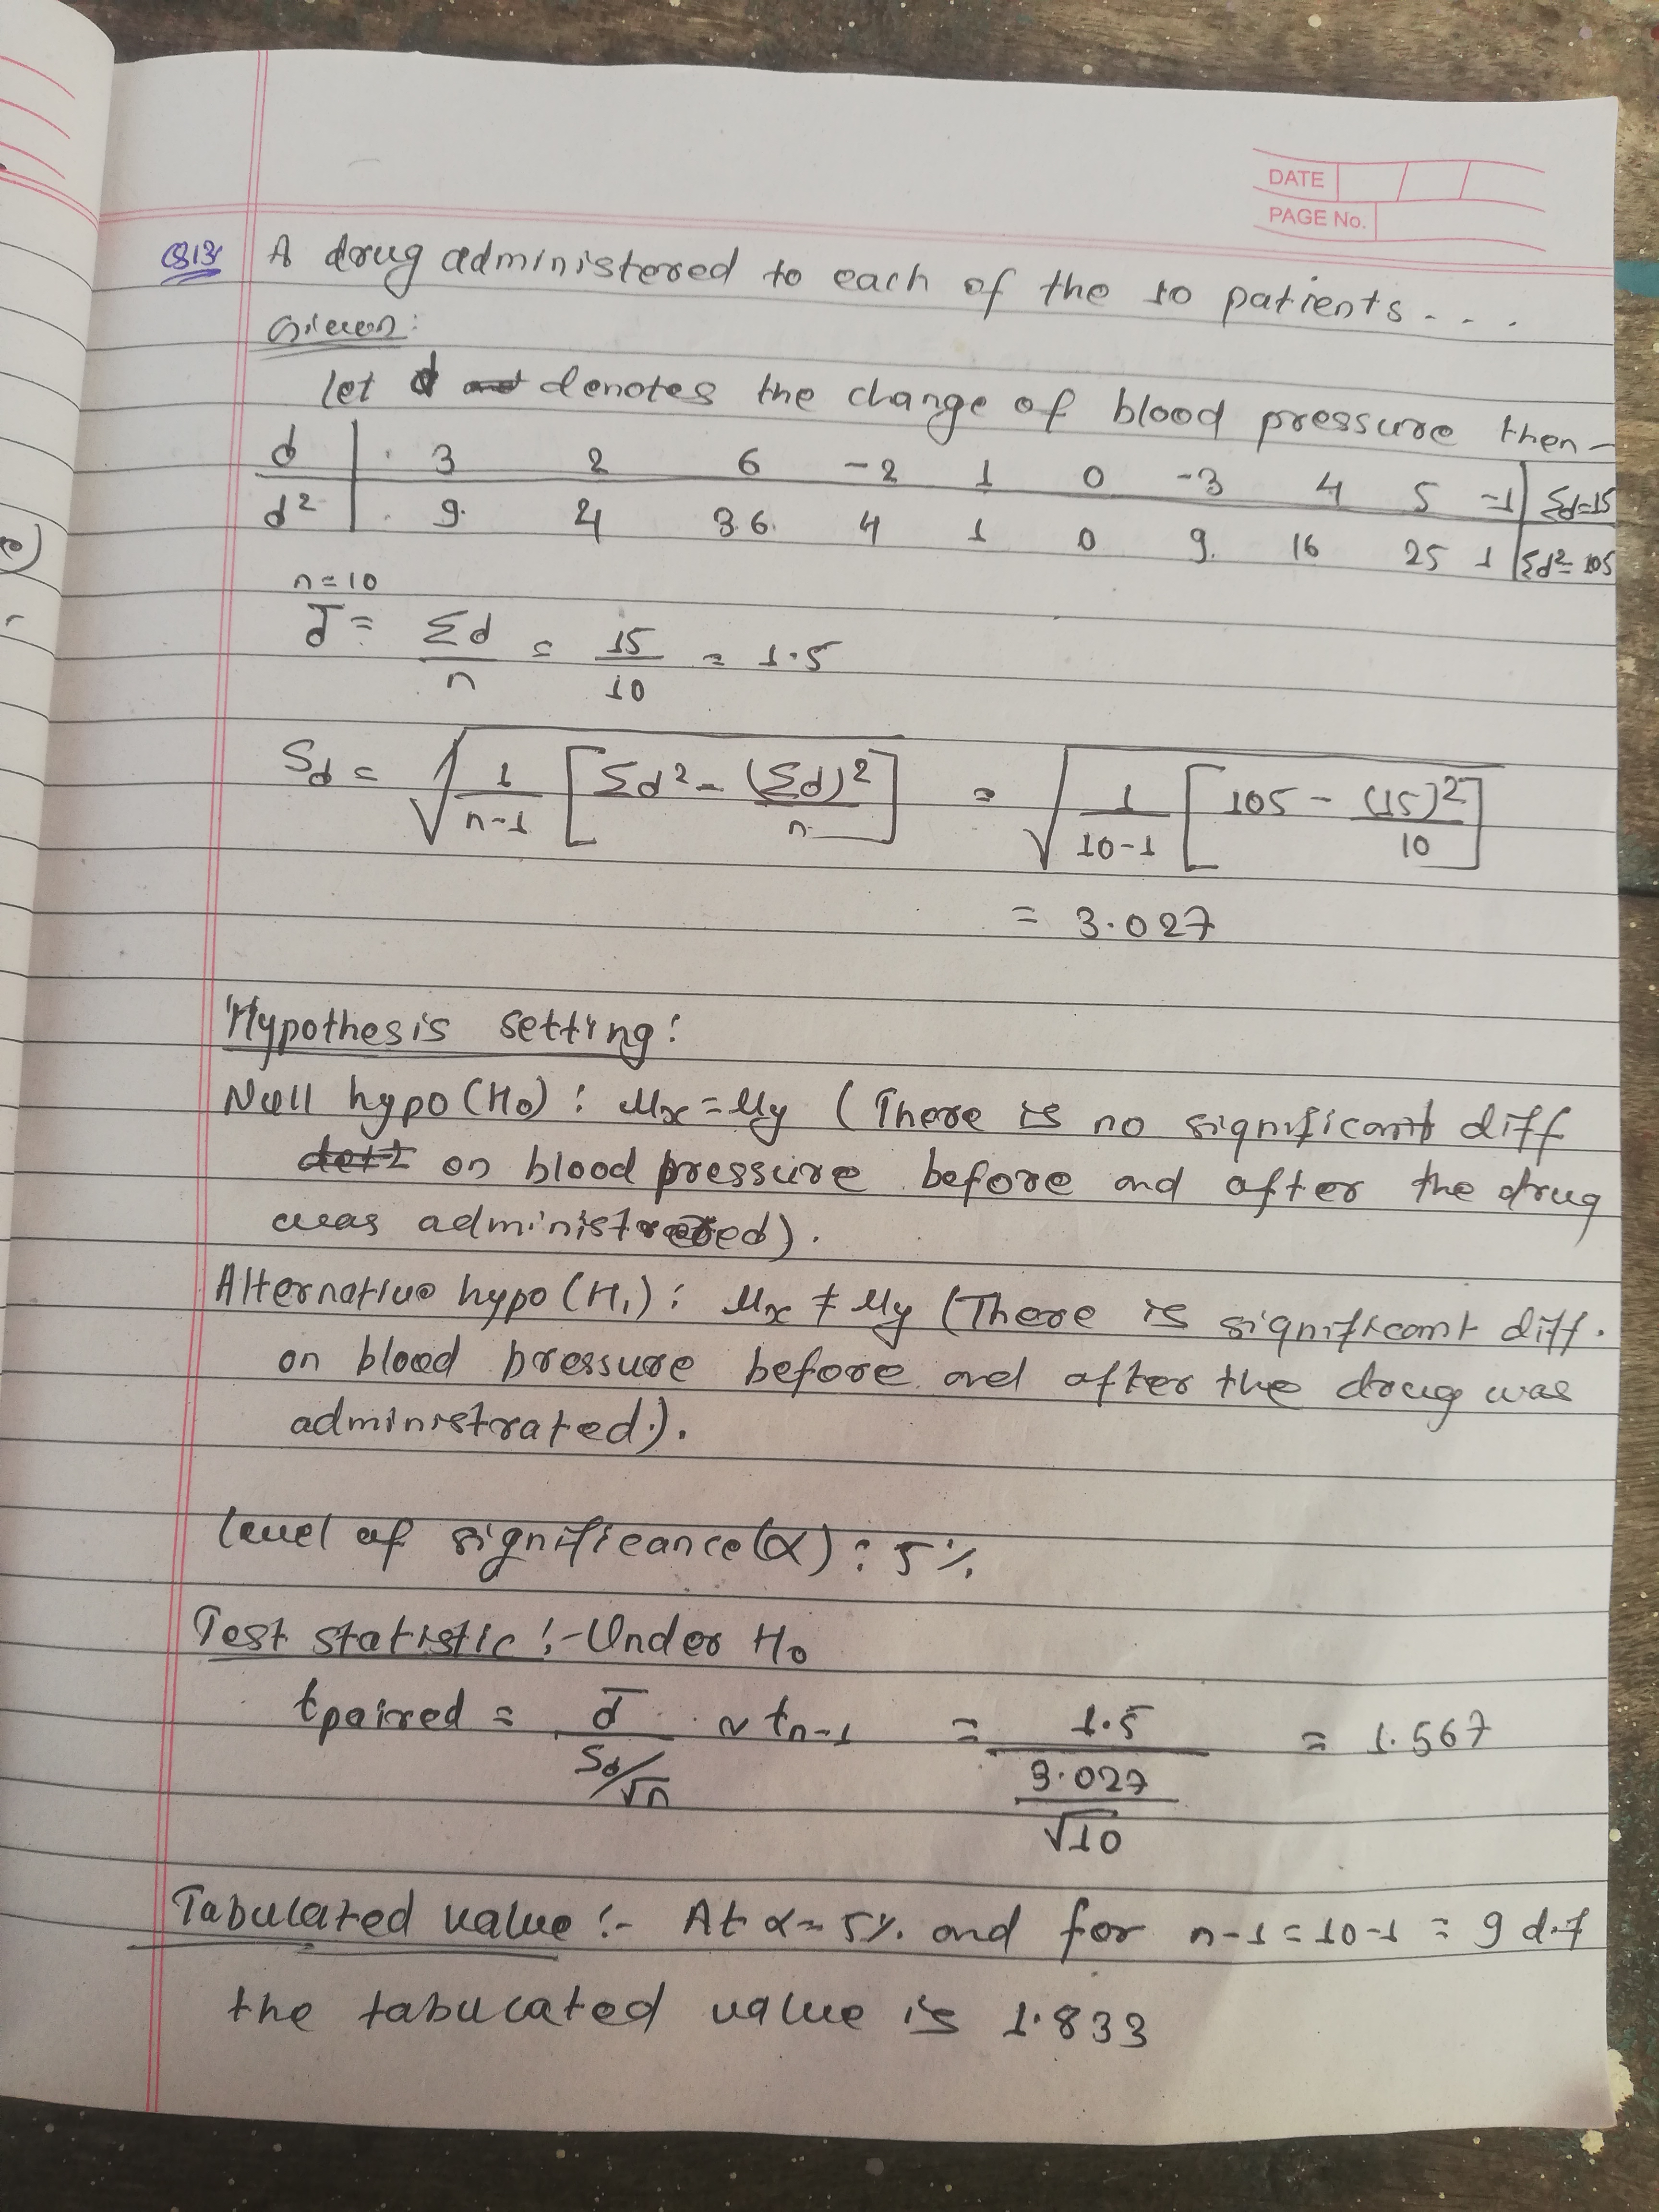 DATE
PAGE No.
Q13 A drug administered to each of the 10 patients...
Given:
let d denotes the change of blood pressure then-
d | 3 2 6 -2 1 0 -3 4 5 -1 | Σd=15
d² | 9 4 36 4 1 0 9 16 25 1 | Σd²= 105
n=10
d̄ = Σd/n = 15/10 = 1.5
Sd = √(1/(n-1) [Σd² - (Σd)²/n]) = √(1/(10-1) [105 - (15)²/10])
= 3.027
Hypothesis setting:
Null hypo (H₀): μx = μy (There is no significant diff
on blood pressure before and after the drug
was administered).
Alternative hypo (H₁): μx ≠ μy (There is significant diff.
on blood pressure before and after the drug was
administrated.).
level of significance (α): 5%
Test statistic :- Under H₀
tpaired = d̄/(Sd/√n) ~ tn-1 = 1.5/(3.027/√10) = 1.567
Tabulated value :- At α = 5% and for n-1 = 10-1 = 9 d.f
the tabulated value is 1.833